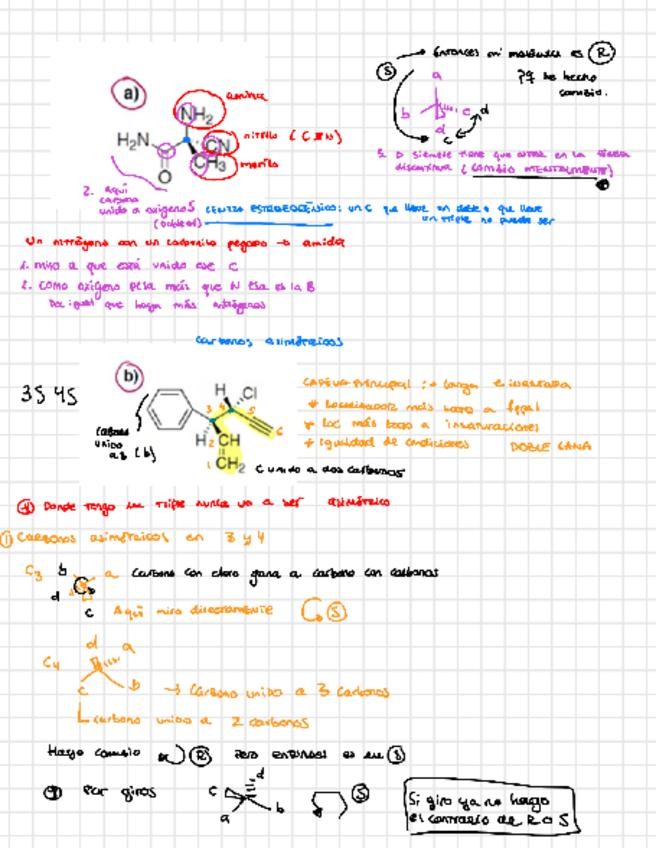 Entonces mi molécula es R
S
Pq he hecho
cambio.
a
b
c
d
d
c
a)
amina
NH₂
nitrilo (C≡N)
H₂N
CN
CH₃
metilo
O
3. D siempre tiene que estar en la línea
discontinua (cambio MENTALMENTE)
2. Aquí
carbono
unido a oxígenos
(dobles)
CENTRO ESTEREOGÉNICO: un C que lleve un doble o que lleve
un triple no puede ser
Un nitrógeno con un carbonilo pegado → amida
1. miro a que está unido ese C
2. Como oxígeno pesa más que N esa es la B
Da igual que haya más nitrógenos
Carbonos asimétricos
b)
3S 4S
H
Cl
3
4
5
6
H
2
CH
1
CH₂
carbono
unido
a 3 (b)
C unido a dos carbonos
CADENA PRINCIPAL: * larga e insaturada
* Localizador más bajo a
* Loc más bajo a insaturaciones
* Igualdad de condiciones DOBLE GANA
Donde tengo un triple nunca va a ser asimétrico
① Carbonos asimétricos en 3 y 4
C₃
b
a
d
c
Carbono con cloro gana a carbono con carbonos
Aquí miro directamente
S
C₄
d
a
c
b
→ Carbono unido a 3 carbonos
carbono unido a 2 carbonos
Hago cambio
R
Pero entonces es
S
Por giros
c
d
a
b
S
Si giro ya no hago
el contrario de R o S